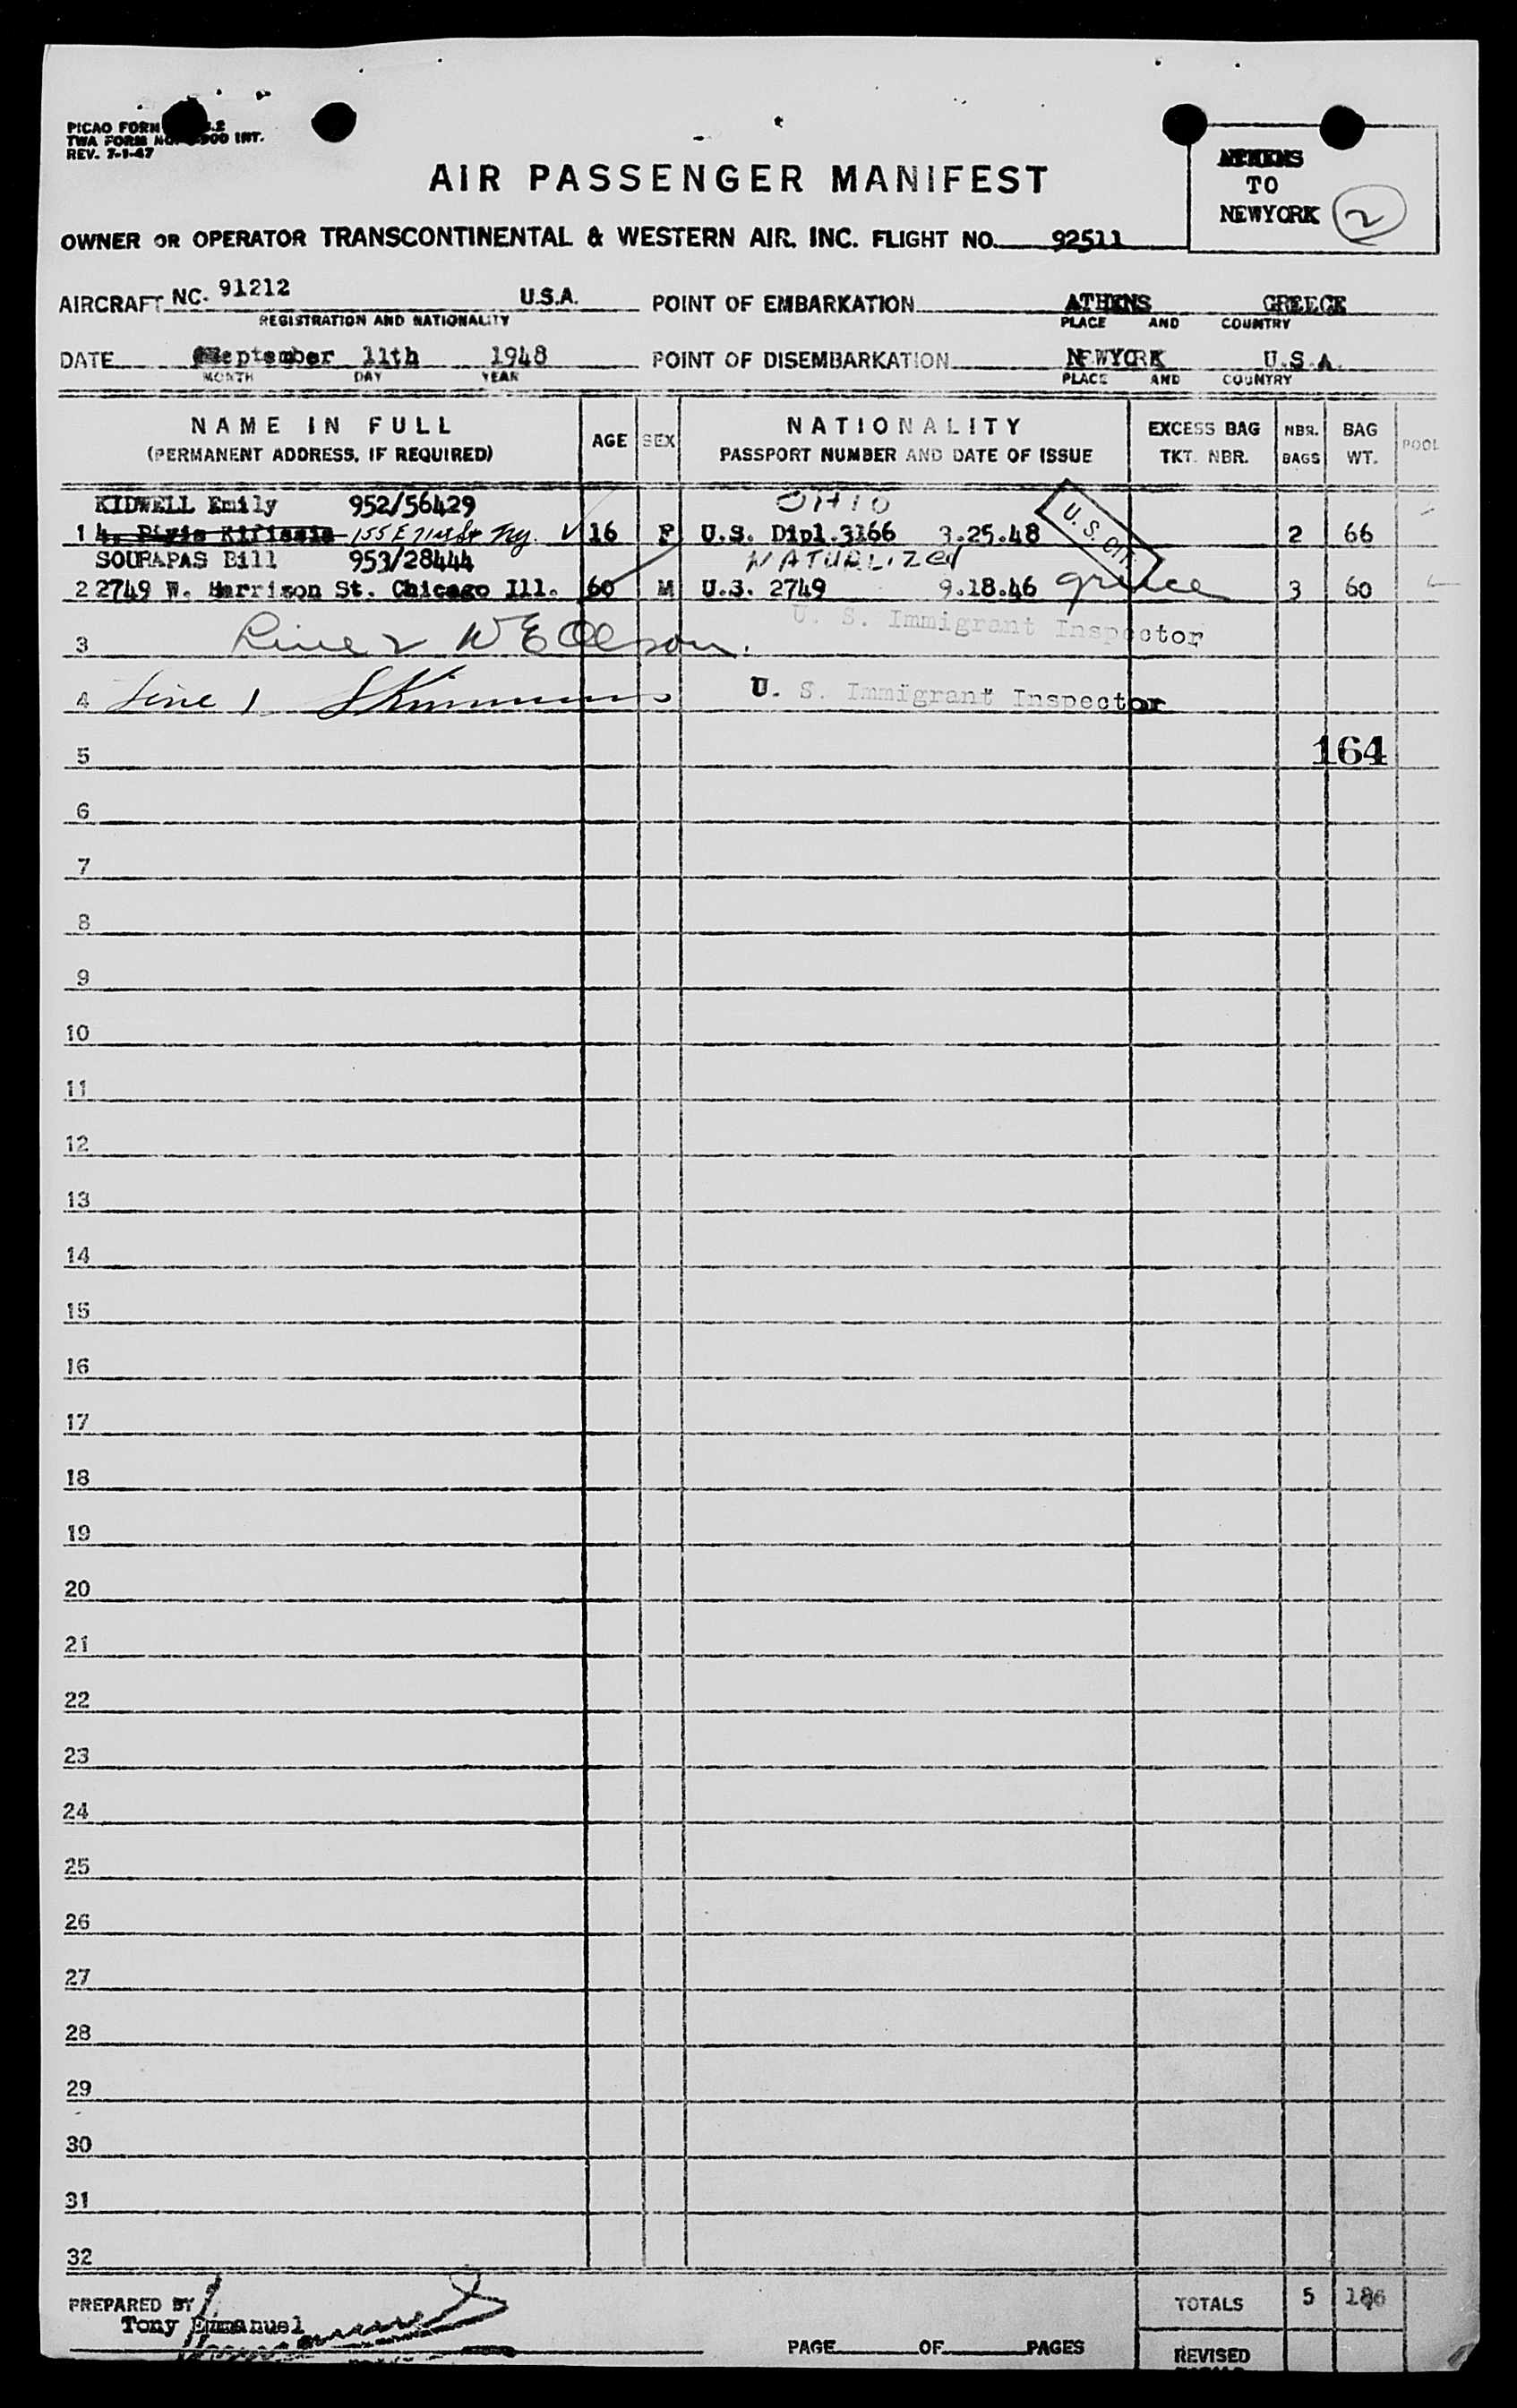 PICAO FORM
TWA FORM NO. 900 INT.
REV. 7-1-47
ATHENS
TO
NEWYORK 2
AIR PASSENGER MANIFEST
OWNER OR OPERATOR TRANSCONTINENTAL & WESTERN AIR. INC. FLIGHT NO. 92511
AIRCRAFT NC. 91212 U.S.A. POINT OF EMBARKATION ATHENS GREECE
REGISTRATION AND NATIONALITY PLACE AND COUNTRY
DATE September 11th 1948 POINT OF DISEMBARKATION NEWYORK U.S.A.
MONTH DAY YEAR PLACE AND COUNTRY
NAME IN FULL AGE SEX NATIONALITY EXCESS BAG NBR. BAG POOL
(PERMANENT ADDRESS, IF REQUIRED) PASSPORT NUMBER AND DATE OF ISSUE TKT. NBR. BAGS WT.
KIDWELL Emily 952/56429 OHIO
1 155 E 71st St NY. V 16 F U.S. Dipl.3166 3.25.48 U.S. CIT. 2 66
SOURAPAS Bill 953/28444 NATURALIZED
2 2749 W. Harrison St. Chicago Ill. 60 M U.S. 2749 9.18.46 Greece 3 60
U. S. Immigrant Inspector
3 Line 2 W E Olson.
4 Line 1 U. S. Immigrant Inspector
164
5
6
7
8
9
10
11
12
13
14
15
16
17
18
19
20
21
22
23
24
25
26
27
28
29
30
31
32
PREPARED BY TOTALS 5
Tony Emmanuel
PAGE OF PAGES REVISED